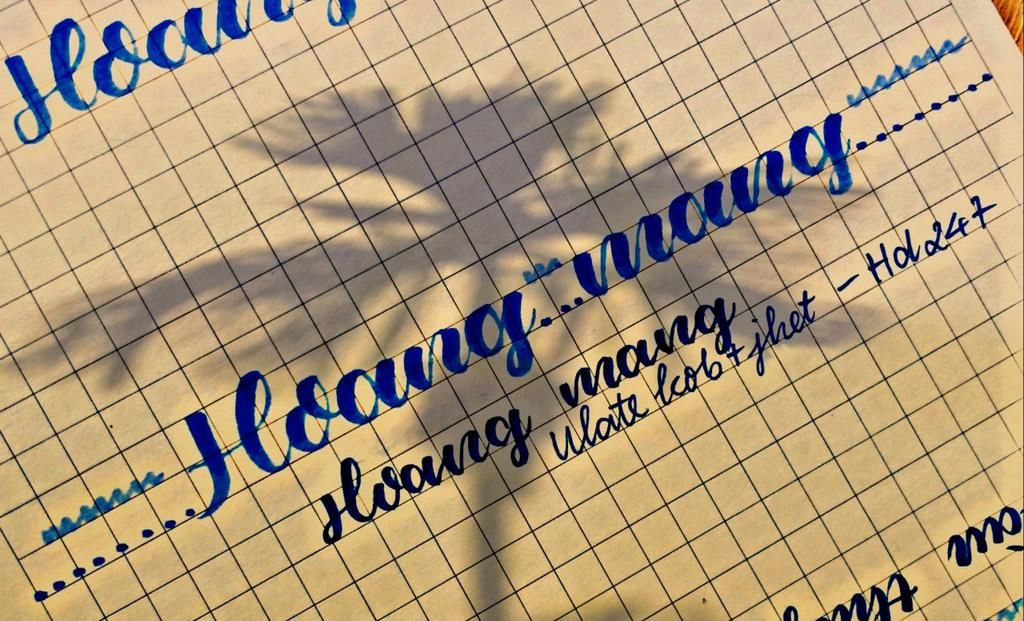 Hoang
Hoang...mang.......
Hoang mang
Ulate kob+jhet - Hd247